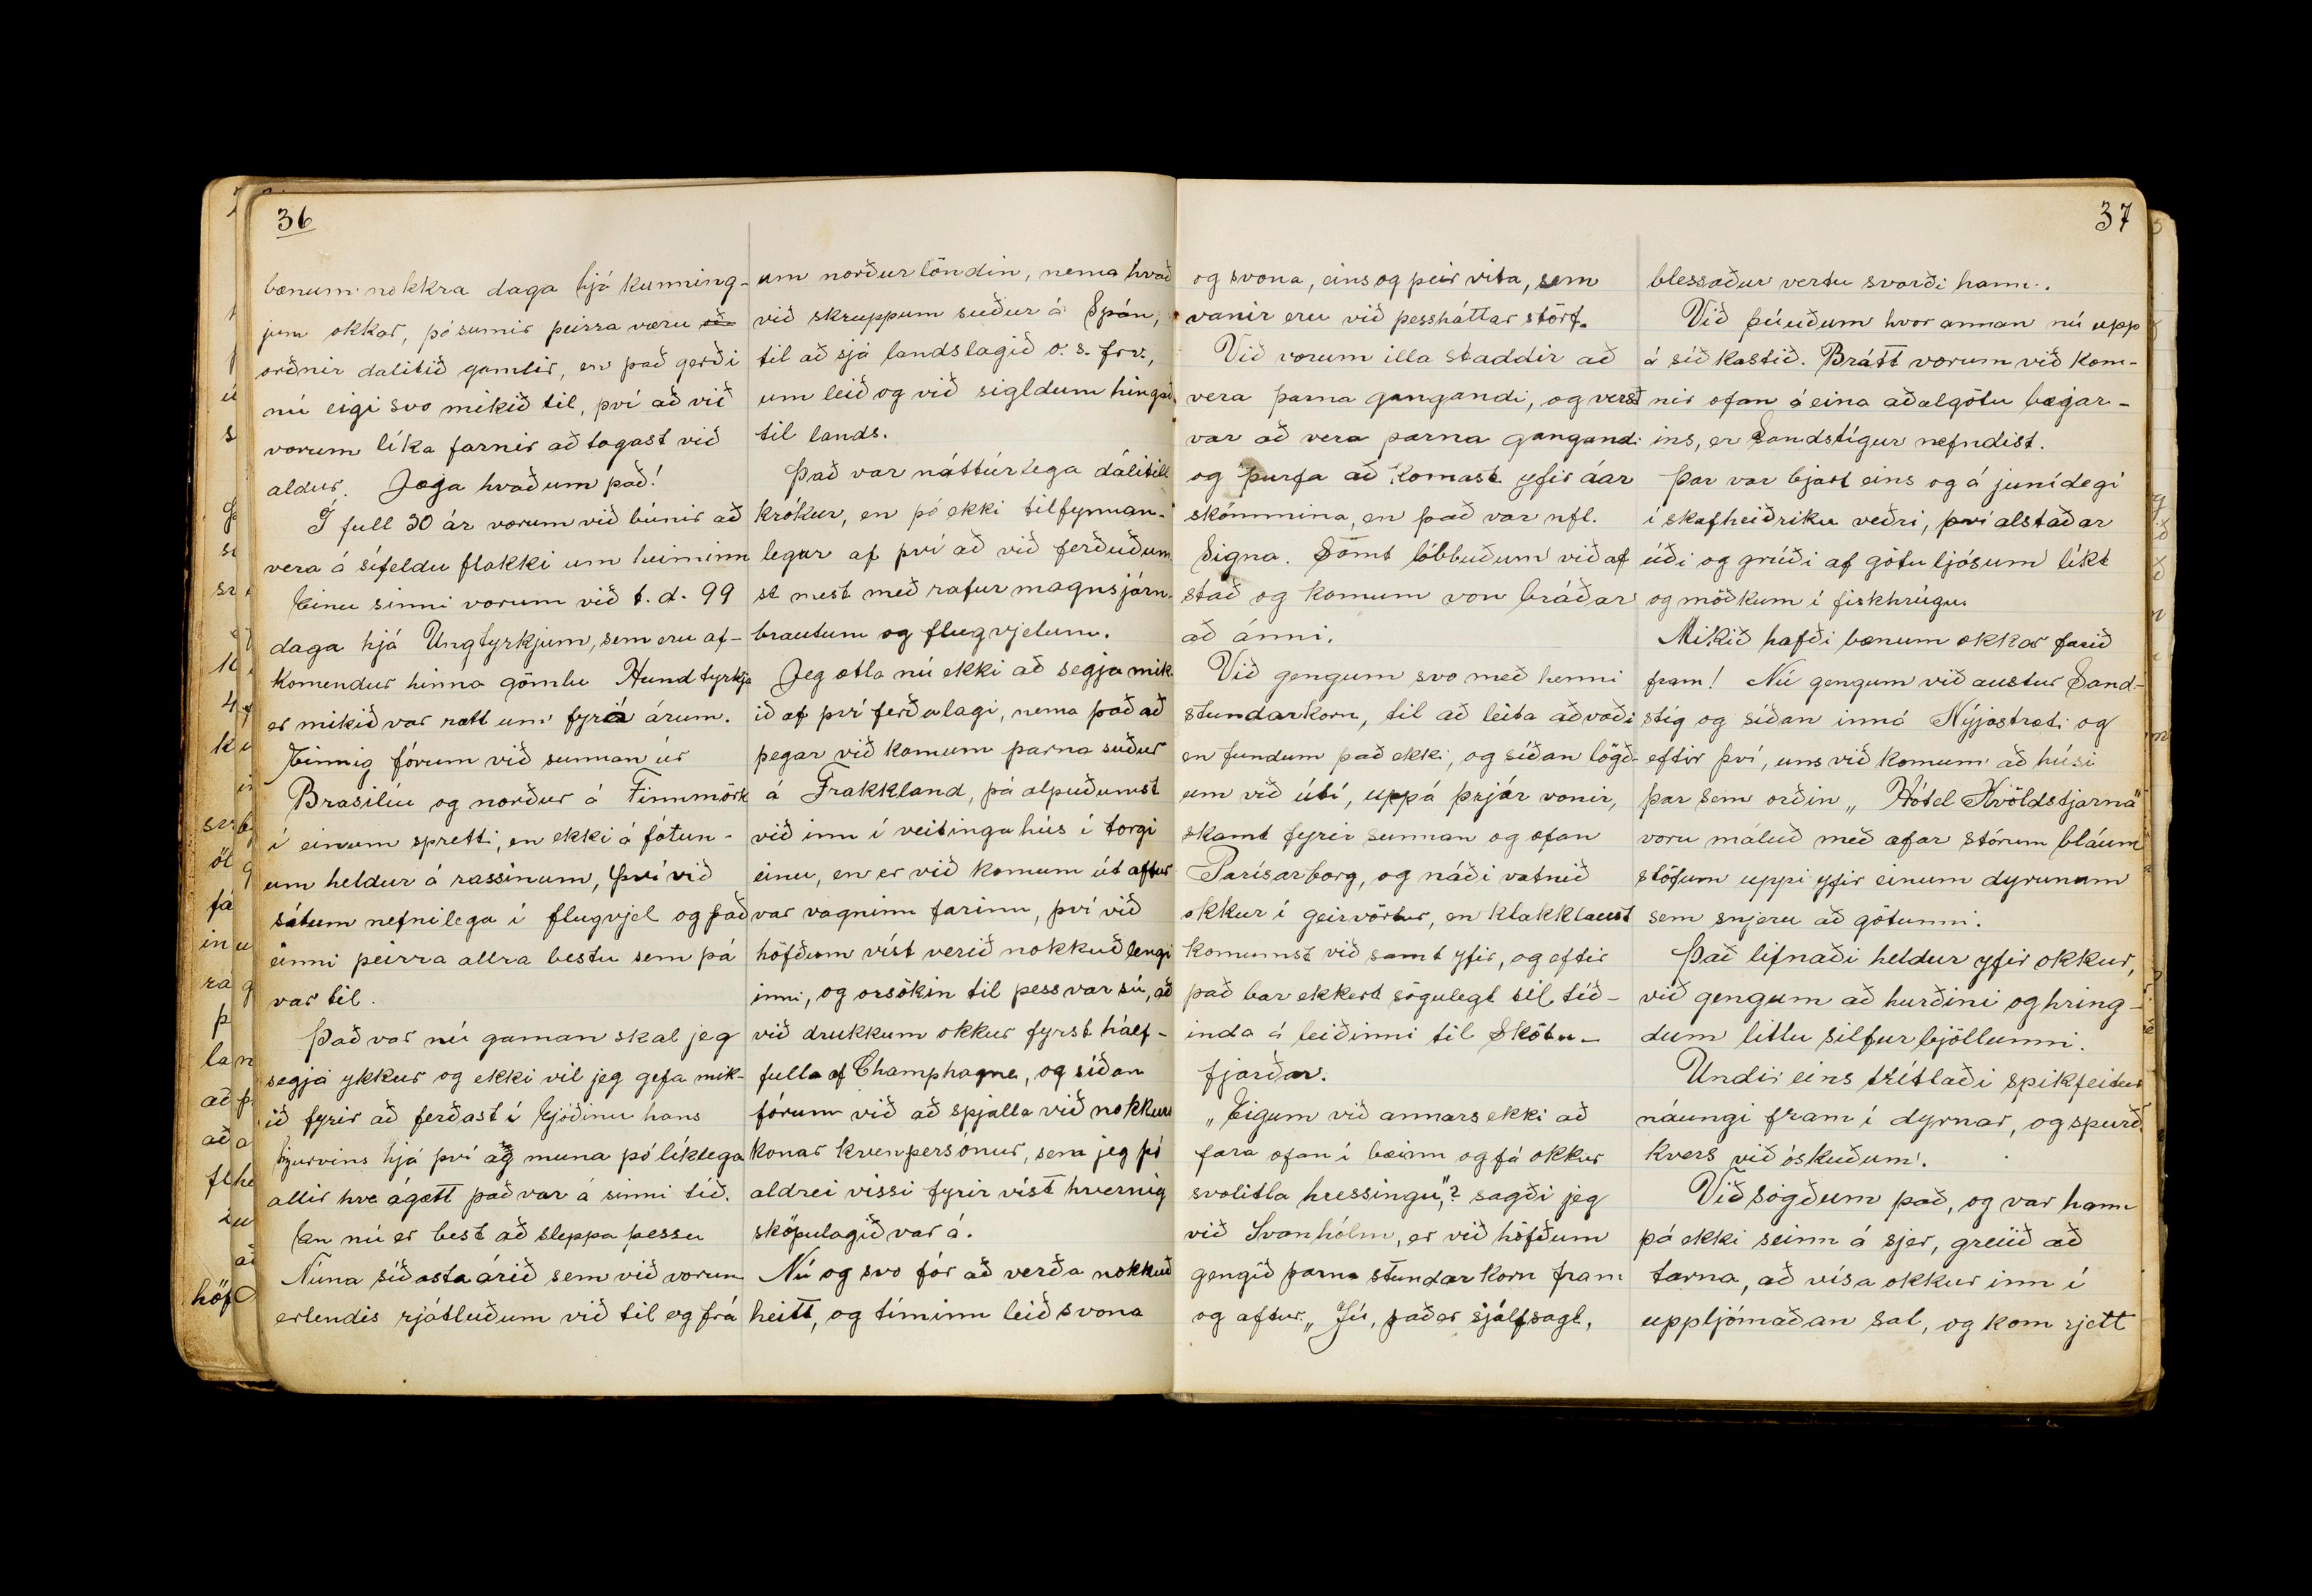 36
bænum nokkra daga hjá kunning-
jum okkar, þó sumir þeirra væru
orðnir dalítið gamlir, en það gerði
nú eigi svo mikið til, því að við
vorum líka farnir að togast við
aldur. Jæja hvað um það!
Í full 30 ár vorum við búnir að
vera á sífeldu flakki um heiminn
Einu sinni vorum við t.d. 99
daga hjá Ungtyrkjum, sem eru af-
komendur hinna gömlu Hundtyrkja
er mikið var rætt um fyr á árum.
Einnig fórum við sunnan úr
Brasilíu og norður á Finnmörk
í einum spretti, en ekki á fótun-
um heldur á rassinum, því við
sátum nefnilega í flugvjel og það
einni þeirra allra bestu sem þá
var til.
Það var nú gaman skal jeg
segja ykkur og ekki vil jeg gefa mik-
ið fyrir að ferðast í hans
Sigurvins hjá því og muna þó líklega
allir hve ágætt það var á sinni tíð.
En nú er best að sleppa þessu
Núna síðasta árið sem við vorum
erlendis rjátluðum við til og frá
um norðurlöndin, nema hvað
við skruppum suður á Spán,
til að sjá landslagið o.s.frv.,
um leið og við sigldum hingað
til lands.
Það var náttúrlega dálítill
krókur, en þó ekki tilfynnan-
legur af því að við ferðuðum
st mest með rafurmagnsjárn-
brautum og flugvjelum.
Jeg ætla nú ekki að segja mik
ið af því ferðalagi, nema það að
þegar við komum þarna suður
á Frakkland, þá álpuðumst
við inn í veitingahús í torgi
einu, en er við komum út aftur
var vagninn farinn, því við
höfðum víst verið nokkuð lengi
inni, og orsökin til þess var sú, að
við drukkum okkur fyrst hálf-
fulla af Champhagne, og síðan
fórum við að spjalla við nokkurs
konar kvenpersónur, sem jeg þó
aldrei vissi fyrir víst hvernig
sköpulagið var á.
Nú og svo fór að verða nokkuð
heitt, og tíminn leið svona
37
og svona, eins og þeir vita, sem
vanir eru við þessháttar störf.
Við vorum illa staddir að
vera þarna gangandi, og verst
var að vera þarna gangandi
og þurfa að komast yfir áar
skömmina, en það var nfl.
Signa. Samt löbbuðum við af
stað og komum von bráðar
að ánni.
Við gengum svo með henni
stundarkorn, til að leita að vaði
en fundum það ekki, og síðan lögð-
um við útí, uppá þrjár vonir,
skamt fyrir sunnan og ofan
Parísarborg, og náði vatnið
okkur í geirvörtur, en klakklaust
komumst við samt yfir, og eftir
það bar ekkert sögulegt til tíð-
inda á leiðinni til Skötu-
fjarðar.
„Eigum við annars ekki að
fara ofan í bæinn og fá okkur
svolitla hressingu,"? sagði jeg
við Svanhólm, er við höfðum
gengið þarna stundarkorn fram
og aftur. „Jú, það er sjálfsagt,
blessaður vertu svarði hann.
Við þúuðum hvor annan nú upp
á síðkastið. Brátt vorum við kom-
nir ofan á eina aðalgötu bæjar-
ins, er Sandstígur nefndist.
Þar var bjart eins og á júnídegi
í skafheiðríku veðri, því alstaðar
úði og grúði af götuljósum líkt
og möðkum í fiskhrúgu.
Mikið hafði bænum okkar farið
fram! Nú gengum við austur Sand-
stíg og síðan inná Nýjastræti og
eftir því, uns við komum að húsi
þar sem orðin „Hótel Kvöldstjarna"
voru máluð með afar stórum bláum
stöfum uppi yfir einum dyrunum
sem snjeru að götunni.
Það lifnaði heldur yfir okkur,
við gengum að hurðini og hring-
dum litlu silfurbjöllunni.
Undir eins trítlaði spikfeitur
náungi fram í dyrnar, og spurði
kvers við óskuðum.
Við sögðum það, og var hann
þá ekki seinn á sjer, greiið að
tarna, að vísa okkur inn í
uppljómaðan sal, og kom rjett